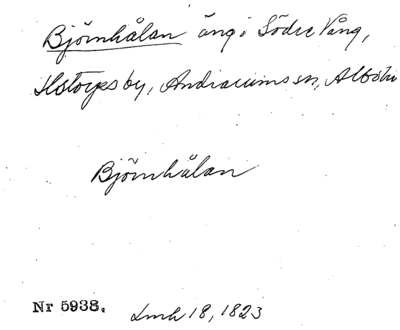 Björnhålan äng i Södre Vång,
Ilstorps by, Andrarums sn, Albo hd
Björnhålan
Nr 5938. Lmh 18, 1823